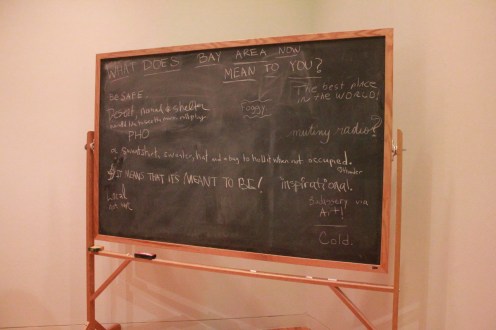 WHAT DOES BAY AREA NOW
MEAN TO YOU?
BE SAFE.
The best place
IN THE WORLD!
Desert, nomad & shelter
Foggy
PHO
mutiny radio?
a sweatshirt, sweater, hat and a bag to hold it when not occupied.
IT MEANS THAT IT'S MEANT TO BE!
inspirational.
Local
via
Art!
Cold.